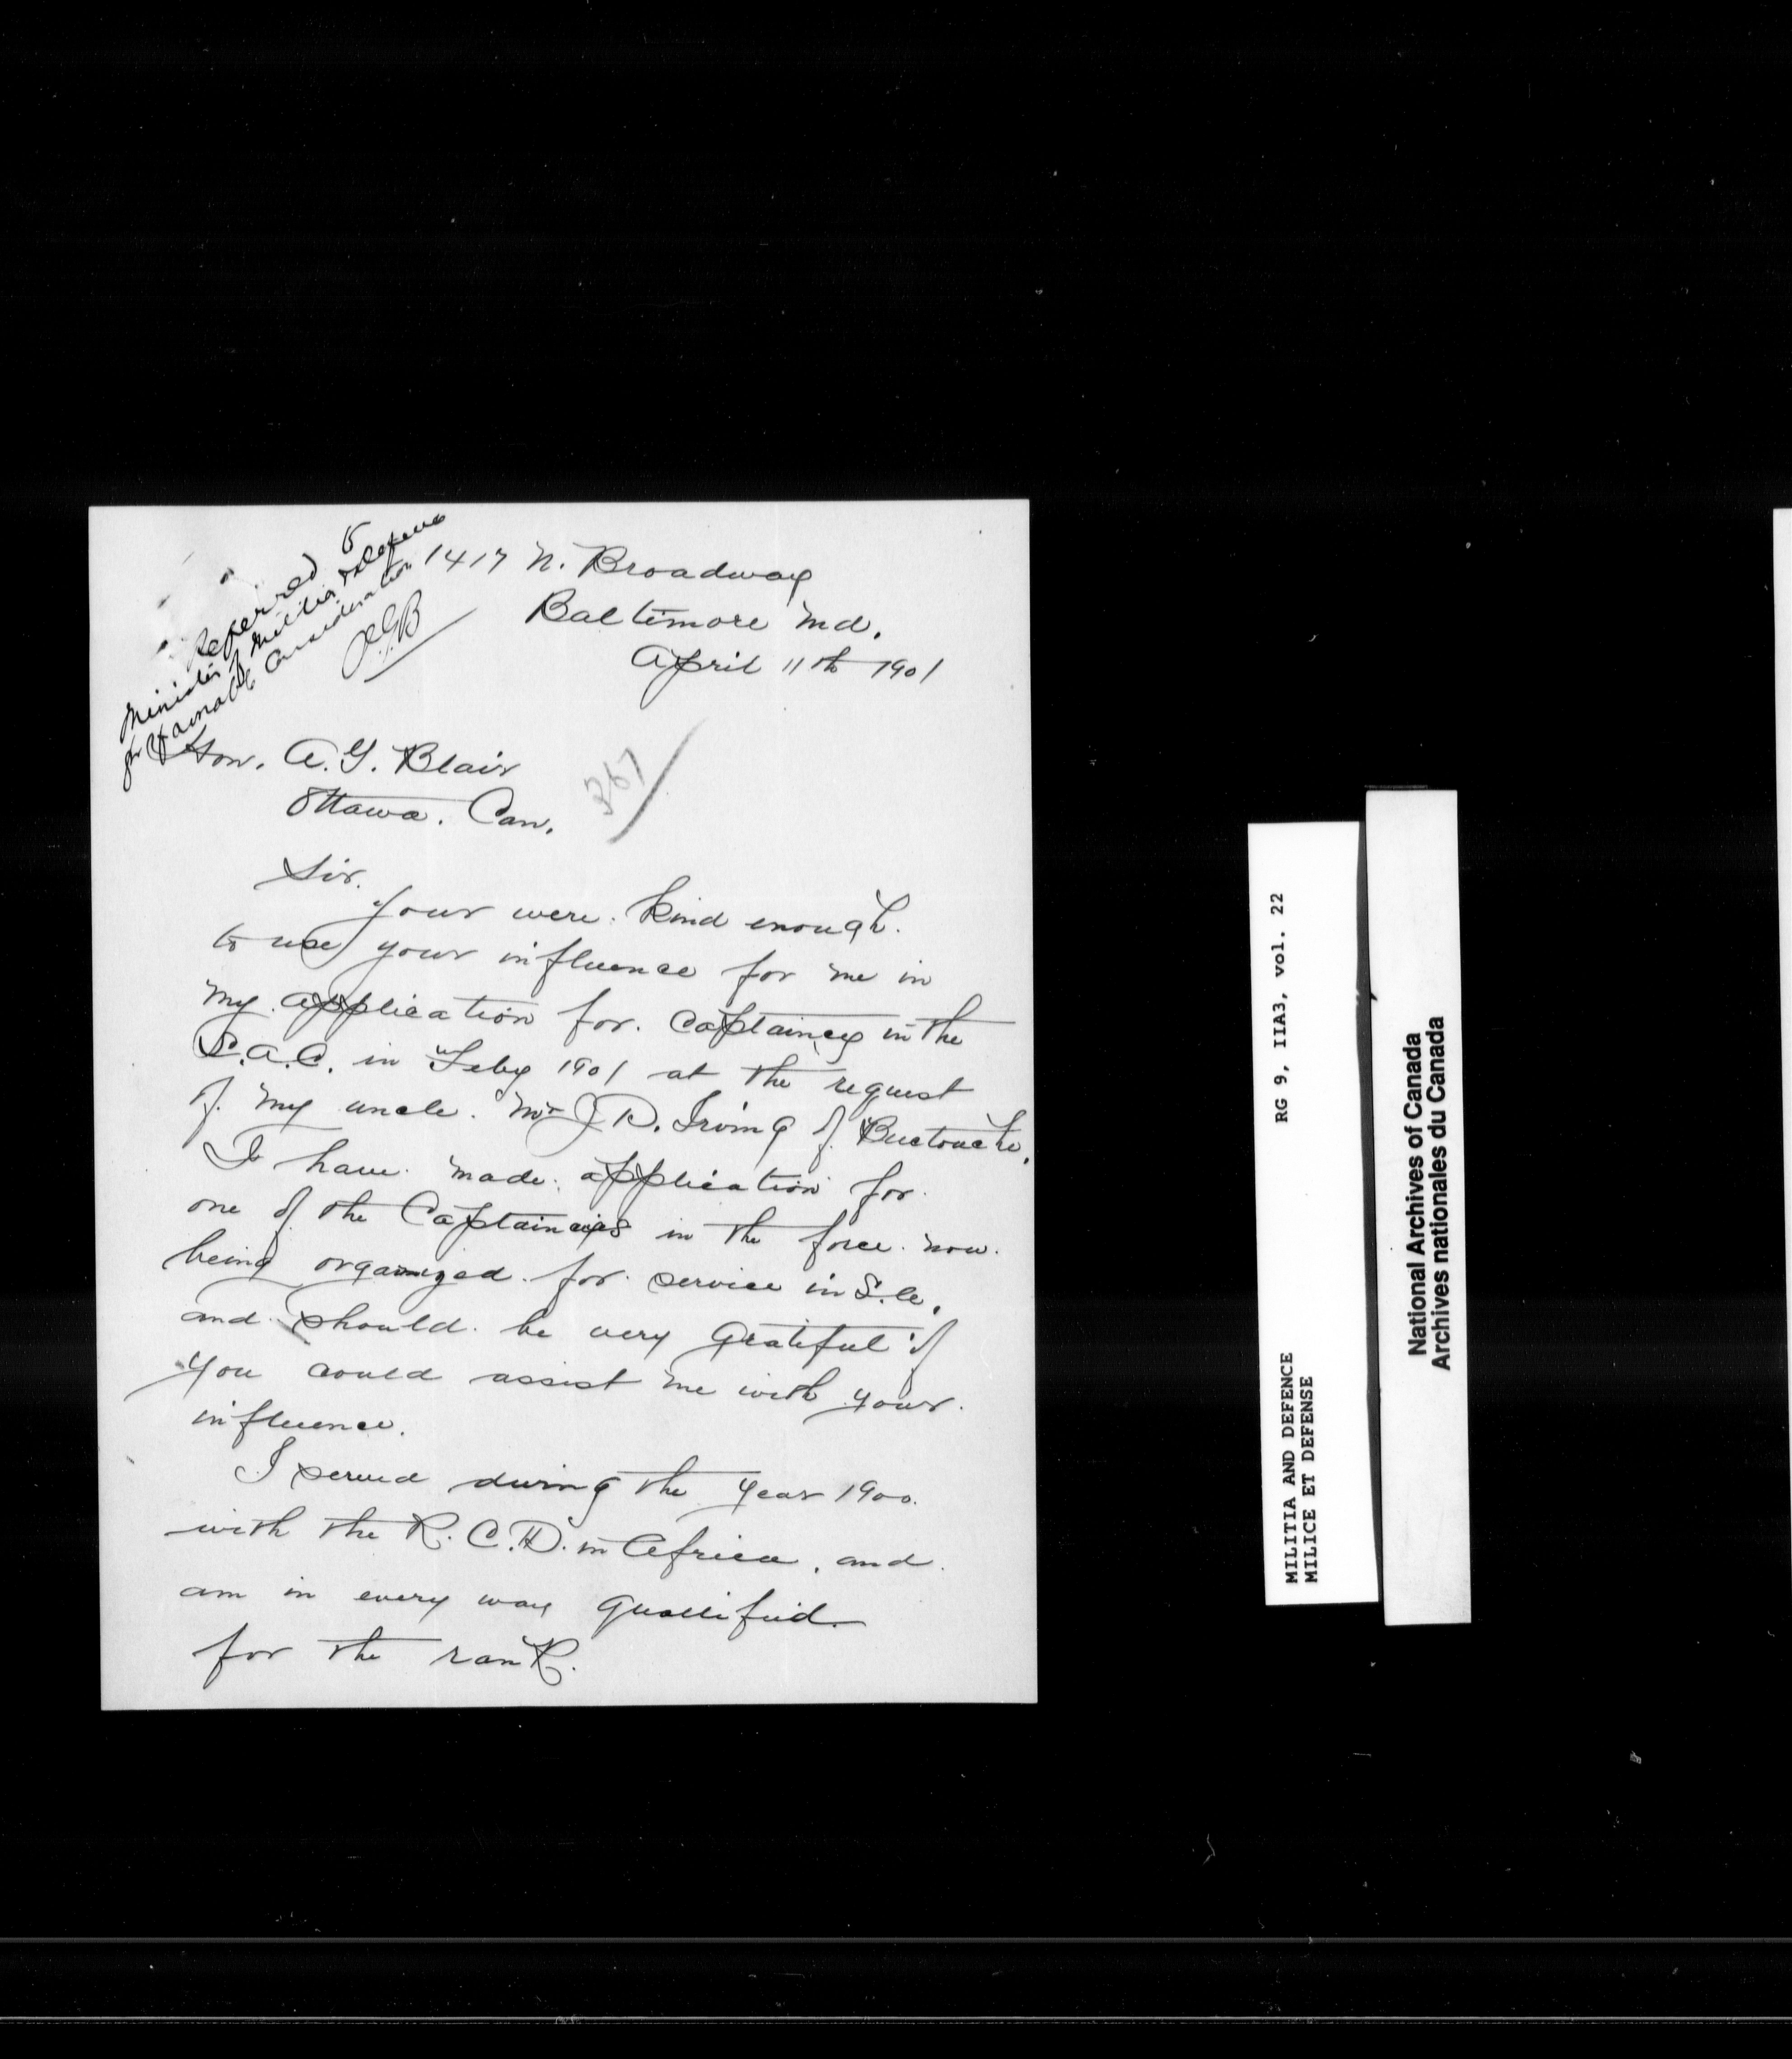 Referred to
Minister of Militia & Defence
for favorable Consideration
A.G.B
1417 N. Broadway
Baltimore Md.
April 11th 1901
367
Hon. A. G. Blair
Ottawa. Can.
Sir.
Your were kind enough.
to use your influence for me in
my application for. Captaincy in the
S.A.C. in Feby 1901 at the request
of my uncle. Mr J D. Irving of Buctouche.
I have made application for
one of the Captaincies in the force now.
being organized for service in S.A.
and should be very grateful if
you could assist me with your.
influence.
I served during the year 1900.
with the R. C. D. in Africa, and
am in every way qualified
for the rank.
MILITIA AND DEFENCE RG 9, IIA3, vol. 22
MILICE ET DEFENSE
National Archives of Canada
Archives nationales du Canada